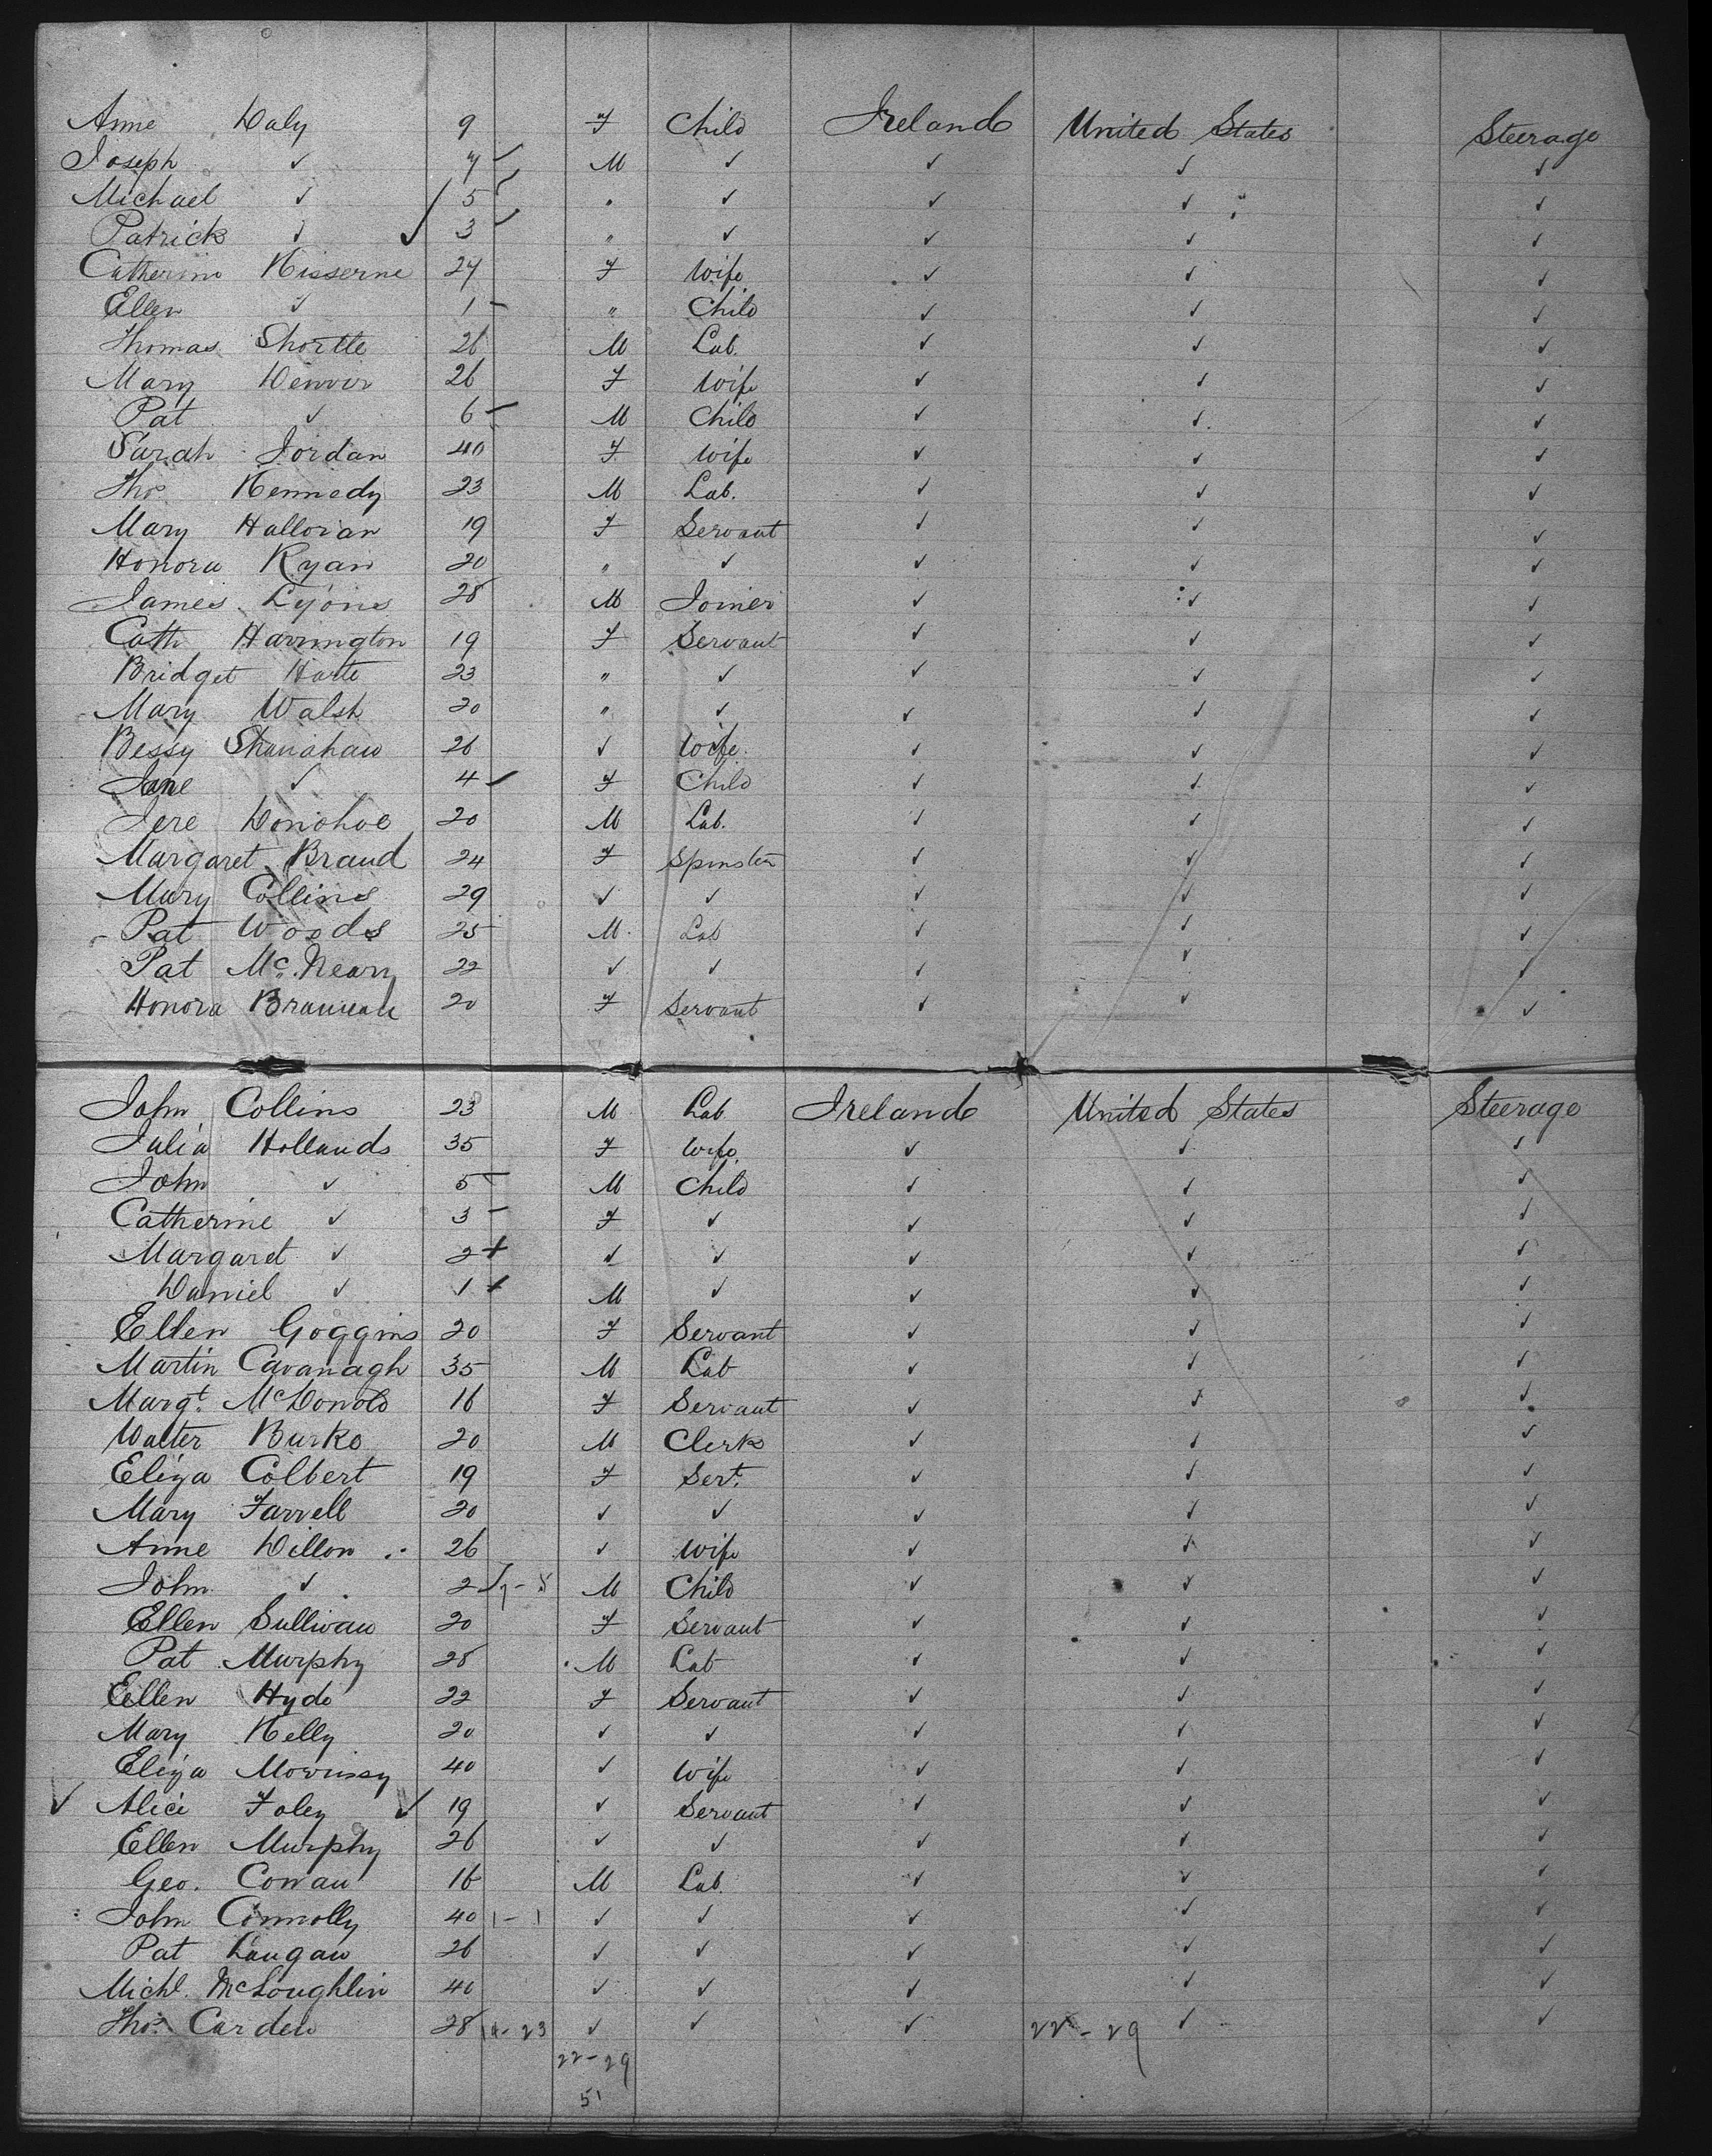 Anne Daly 9 F Child Ireland United States Steerage
Joseph ✓ 7 ✓ M ✓ ✓ ✓ ✓
Michael ✓ 5 ✓ " ✓ ✓ ✓ ✓
Patrick ✓ ✓ 3 ✓ " ✓ ✓ ✓ ✓
Catherine 24 F Wife ✓ ✓ ✓
Ellen ✓ 1 - " Child ✓ ✓ ✓
Thomas Shortle 26 M Lab. ✓ ✓ ✓
Mary Denver 26 F Wife ✓ ✓ ✓
Pat ✓ 6 - M Child ✓ ✓ ✓
Sarah Jordan 40 F Wife ✓ ✓ ✓
Thos Kennedy 23 M Lab. ✓ ✓ ✓
Mary Halloran 19 F Servant ✓ ✓ ✓
Honora Ryan 20 " ✓ ✓ ✓ ✓
James Lyons 28 M Joiner ✓ ✓ ✓
Cath Harrington 19 F Servant ✓ ✓ ✓
Bridget Harte 23 " ✓ ✓ ✓ ✓
Mary Walsh 20 " ✓ ✓ ✓ ✓
Bessy Shanahan 26 ✓ Wife ✓ ✓ ✓
Jane ✓ 4 ✓ F Child ✓ ✓ ✓
Jere Donohoe 20 M Lab. ✓ ✓ ✓
Margaret Braud 24 F Spinster ✓ ✓ ✓
Mary Collins 29 ✓ ✓ ✓ ✓ ✓
Pat Woods 25 M Lab ✓ ✓ ✓
Pat McNeary 22 ✓ ✓ ✓ ✓ ✓
Honora 20 F Servant ✓ ✓ ✓
John Collins 23 M Lab Ireland United States Steerage
Julia Hollands 35 F Wife ✓ ✓ ✓
John ✓ 5 - M Child ✓ ✓ ✓
Catherine ✓ 3 - F ✓ ✓ ✓ ✓
Margaret ✓ 2 + ✓ ✓ ✓ ✓ ✓
Daniel ✓ 1 + M ✓ ✓ ✓ ✓
Ellen Goggins 20 F Servant ✓ ✓ ✓
Martin Cavanagh 35 M Lab ✓ ✓ ✓
Margt. McDonold 16 F Servant ✓ ✓ ✓
Walter Burke 20 M Clerk ✓ ✓ ✓
Eliza Colbert 19 F Sert. ✓ ✓ ✓
Mary Farrell 20 ✓ ✓ ✓ ✓ ✓
Anne Dillon 26 ✓ Wife ✓ ✓ ✓
John ✓ 2 ✓ 7 - 8 M Child ✓ ✓ ✓
Ellen Sullivan 20 F Servant ✓ ✓ ✓
Pat Murphy 28 M Lab ✓ ✓ ✓
Ellen Hyde 22 F Servant ✓ ✓ ✓
Mary Kelly 20 ✓ ✓ ✓ ✓ ✓
Eliza Morrissy 40 ✓ Wife ✓ ✓ ✓
✓ Alice Foley ✓ 19 ✓ Servant ✓ ✓ ✓
Ellen Murphy 26 ✓ ✓ ✓ ✓ ✓
Geo. Cowan 16 M Lab. ✓ ✓ ✓
John Connolly 40 1 - 1 ✓ ✓ ✓ ✓ ✓
Pat Langan 26 ✓ ✓ ✓ ✓ ✓
Michl. McLoughlin 40 ✓ ✓ ✓ ✓ ✓
Thos Carden 28 14 - 23 ✓ ✓ ✓ 22 - 29 ✓ ✓
22 - 29
51